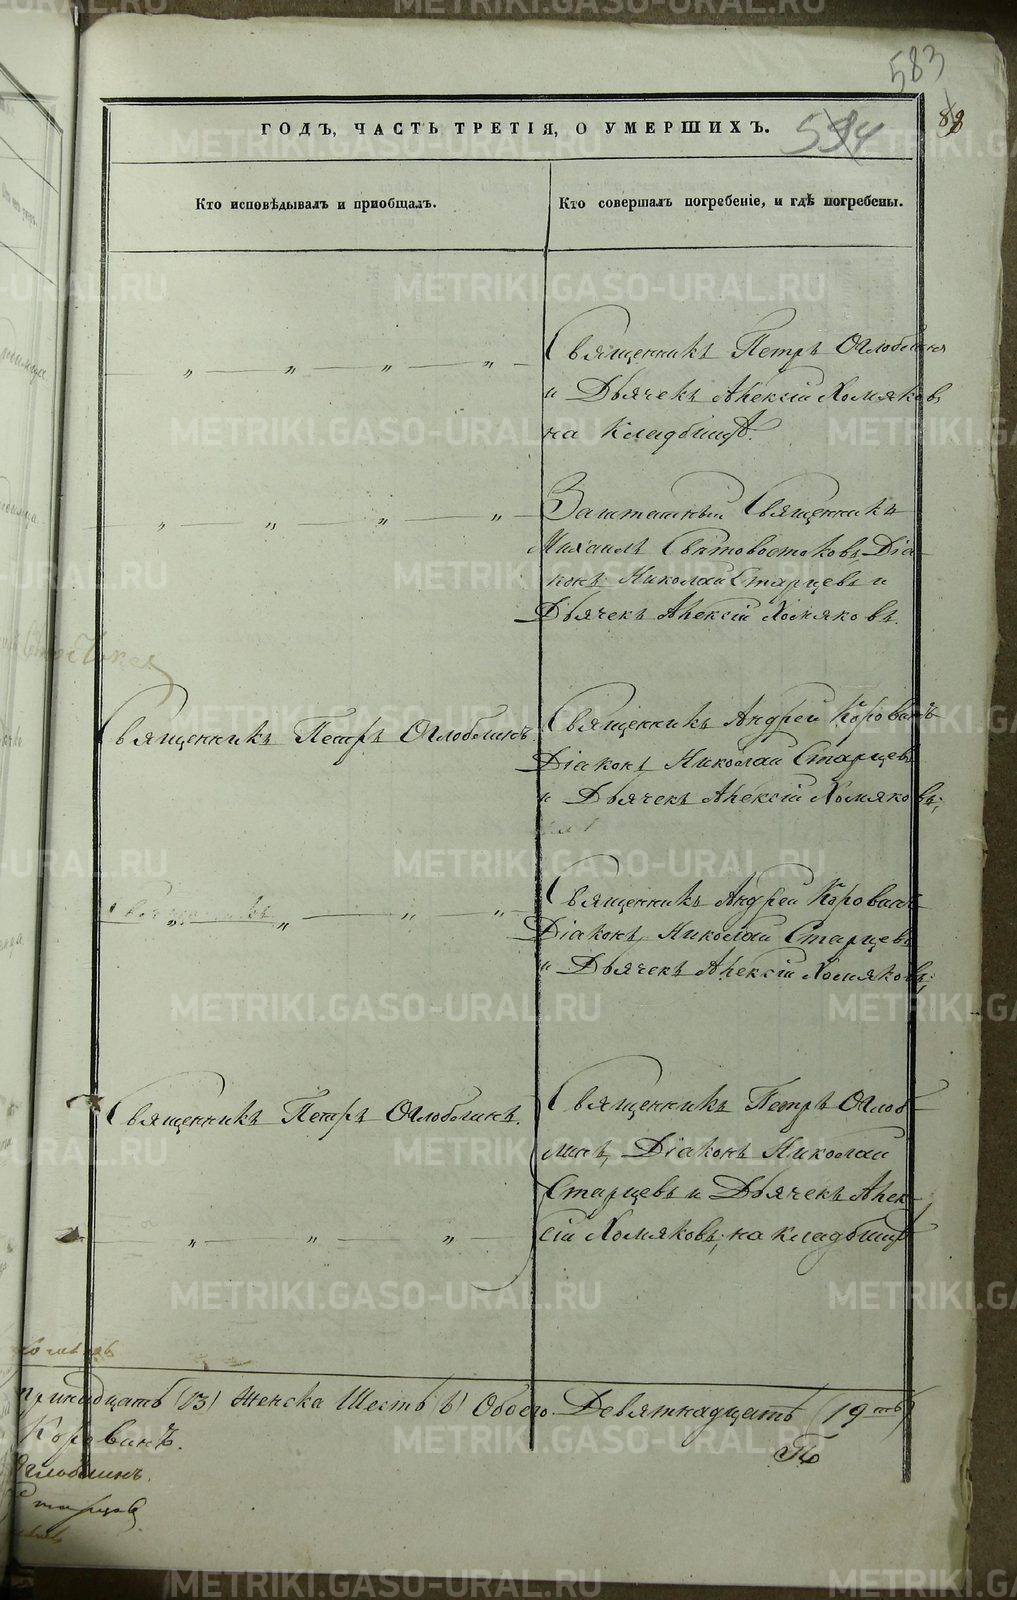 583
ГОДЪ, ЧАСТЬ ТРЕТІЯ, О УМЕРШИХЪ.
584
88
Кто исповѣдывалъ и приобщалъ.
Кто совершалъ погребеніе, и гдѣ погребены.
„ „ „ „
Священникъ Петръ Оглоблинъ
и Дьячекъ Алексій Хомяковъ
на кладбищѣ.
„ „ „ „
Заштатный Священникъ
Михаилъ Святовостоковъ, Діа-
конъ Николай Старцевъ и
Дьячекъ Алексій Хомяковъ.
Священникъ Петръ Оглоблинъ
Священникъ Андрей Корованъ
Діаконъ Николай Старцевъ
и Дьячекъ Алексій Хомяковъ;
Священникъ
„ „ „ „
Священникъ Андрей Корованъ
Діаконъ, Николай Старцевъ
и Дьячекъ Алексій Хомяковъ;
Священникъ Петръ Оглоблинъ.
Священникъ Петръ Оглоб-
линъ, Діаконъ Николай
Старцевъ и Дьячекъ Алек-
сій Хомяковъ, на кладбищѣ
„ „ „
тринадцать (13) Женска Шесть (6) Обоего Девятнадцать (19ть)
Корованъ.
Оглоблинъ.
Старцовъ
METRIKI.GASO-URAL.RU